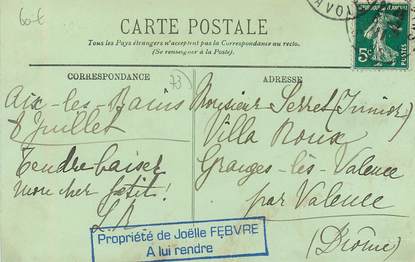 60 €
CARTE POSTALE
Tous les Pays étrangers n'acceptent pas la Correspondance au recto.
(Se renseigner à la Poste).
CORRESPONDANCE
ADRESSE
73
5c
POSTES
Aix-les-Bains
8 Juillet
Tendre baiser
mon cher petit!
Monsieur Serret (Junior)
Villa Roux
Granges-lès-Valence
par Valence
(Drôme)
Propriété de Joëlle FEBVRE
A lui rendre